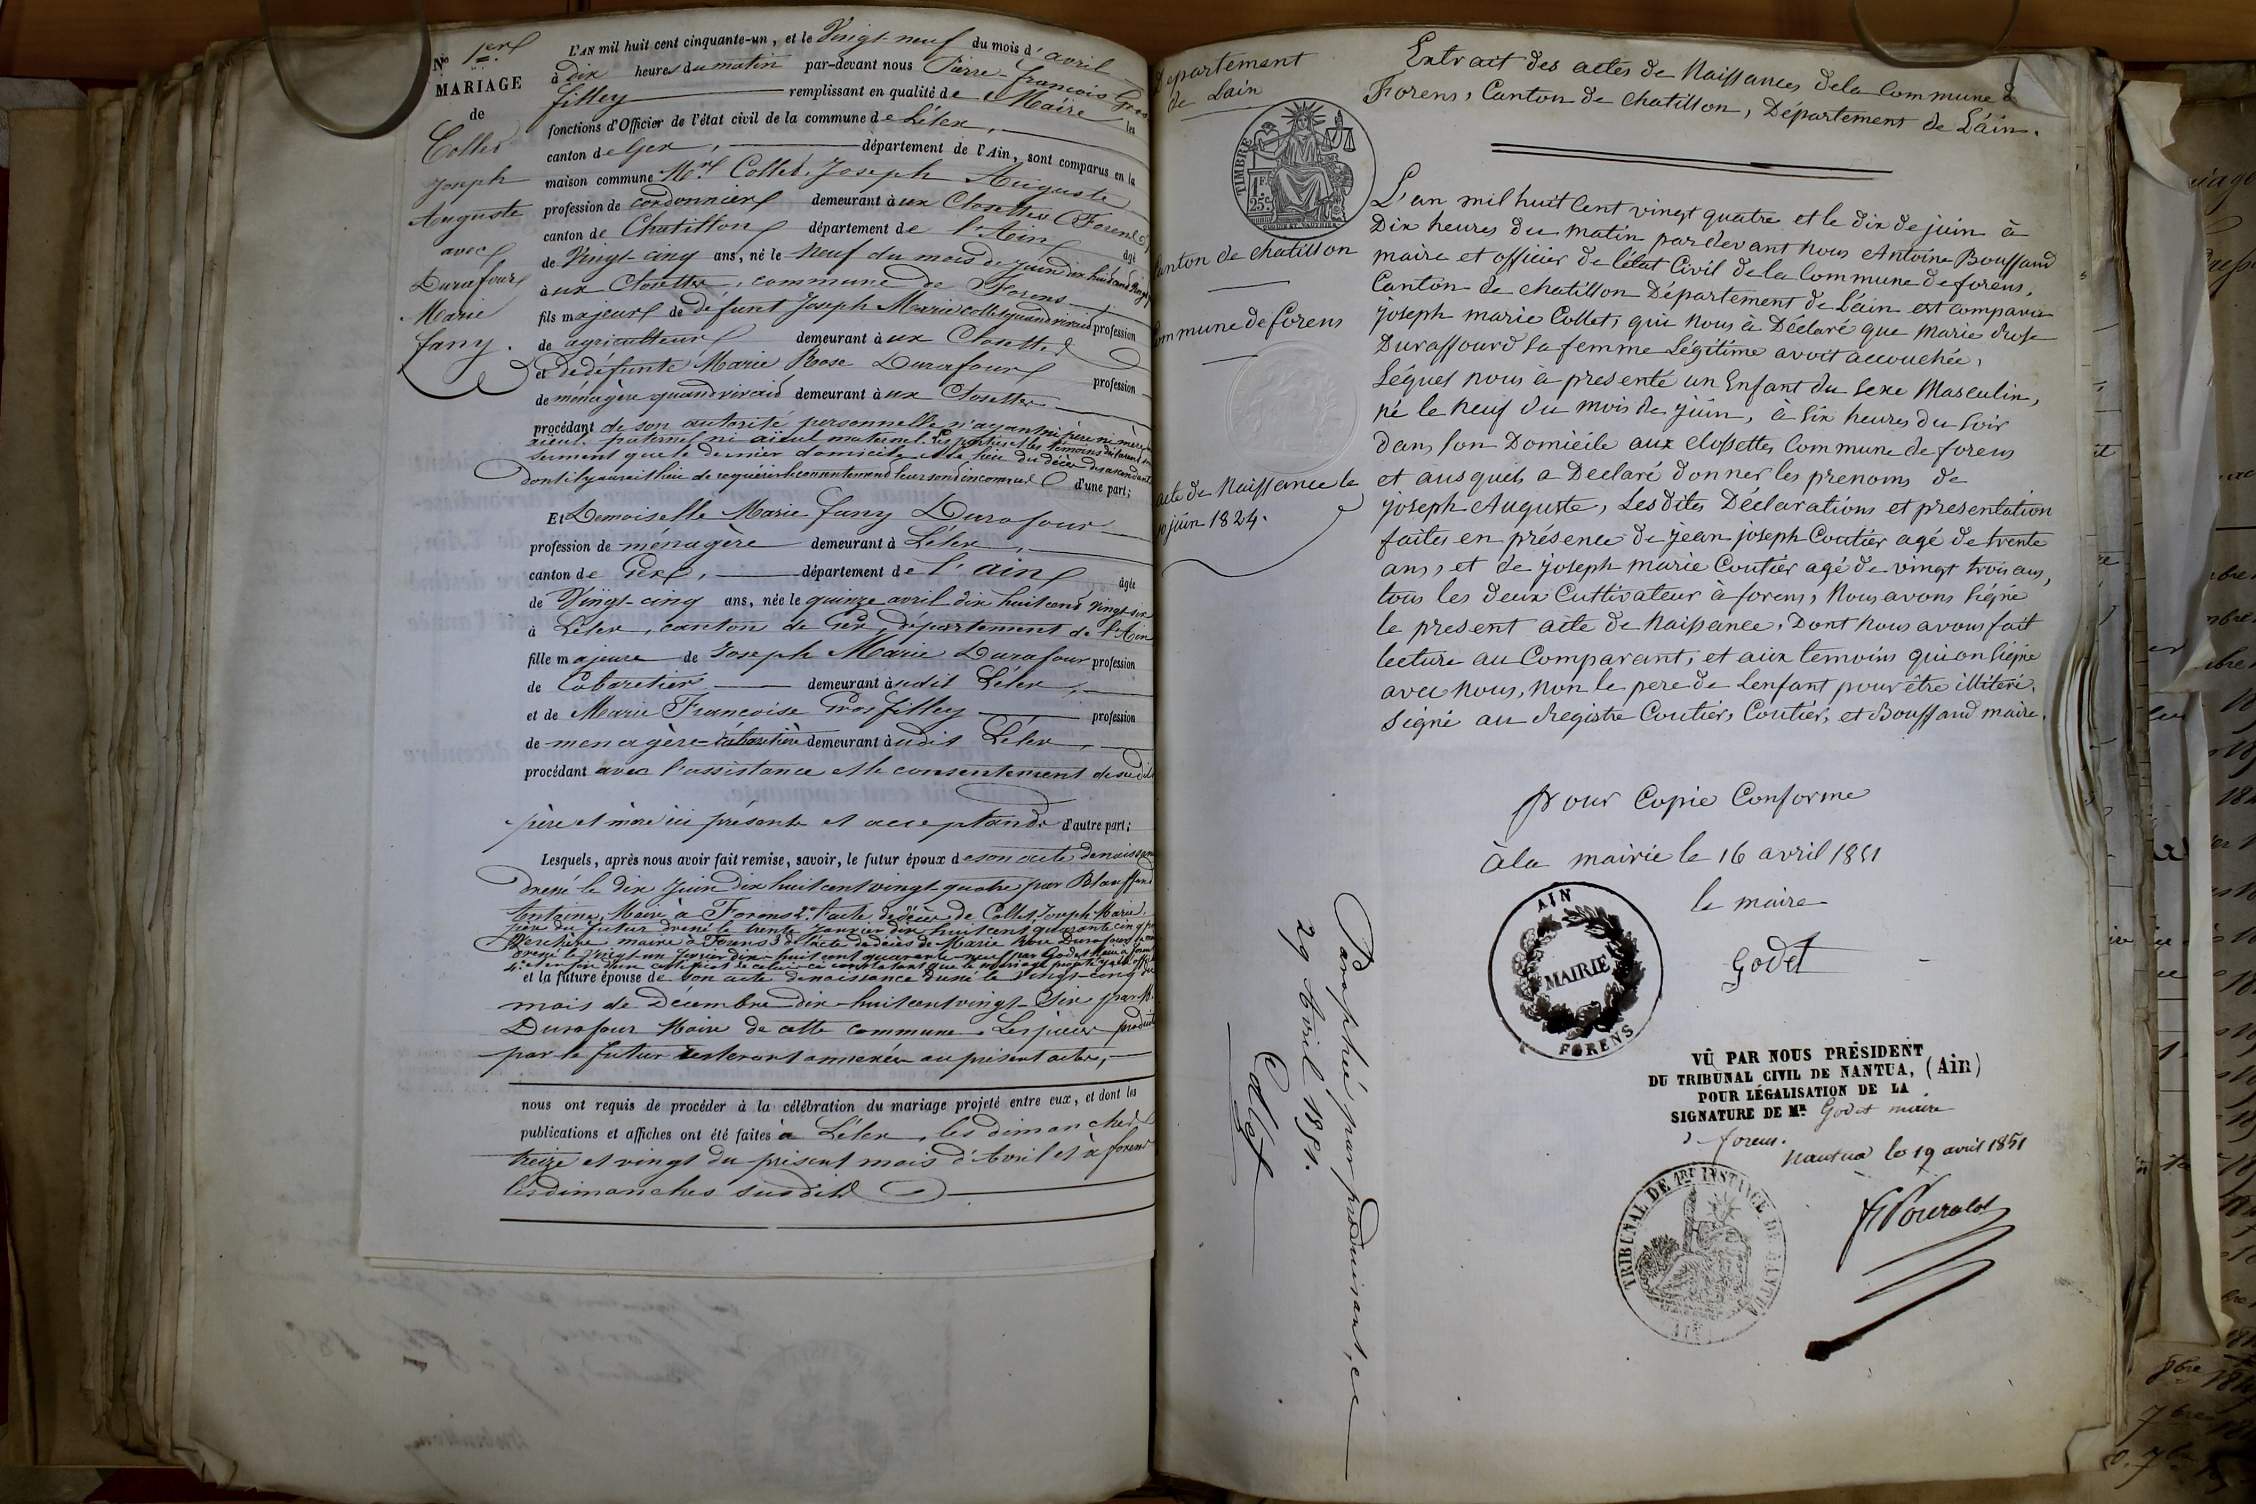 No 1er
MARIAGE
de
Collet
Joseph
Auguste
avec
Durafour
Marie
fany.
L'AN mil huit cent cinquante-un, et le Vingt-neuf du mois d'avril
à dix heures du matin par-devant nous Pierre-françois Gros
filley remplissant en qualité de Maire les
fonctions d'Officier de l'état civil de la commune de Lélex,
canton de Gex, département de l'Ain, sont comparus en la
maison commune Mr Collet Joseph Auguste
profession de cordonnier demeurant à ux Closettes (Forens)
canton de Chatillon département de l'Ain âgé
de Vingt-cinq ans, né le neuf du mois de juin dix huit cent Vingt
à ux Closettes, commune de Forens
fils majeur de défunt Joseph Marie collet quand vivait profession
de agriculteur demeurant à ux Closettes
et de défunte Marie Rose Durafour profession
de ménagère quand vivait demeurant à ux Closettes
procédant de son autorité personnelle n'ayant ni père ni mère
aieul paternel ni aïeul maternel. Les parties et les témoins déclarent
serment que le dernier domicile et le lieu du décès des ascendants
dont il y aurait lieu de requérir le consentement leur sont inconnus d'une part;
Et Demoiselle Marie fany Durafour
profession de ménagère demeurant à Lélex,
canton de Gex, département de l'ain âgée
de Vingt-cinq ans, née le quinze avril dix huit cent vingt-six
à Lélex, canton de Gex, département de l'Ain
fille majeure de Joseph Marie Durafour profession
de Cabaretier demeurant à udit Lélex,
et de Marie Françoise Gros filley profession
de menagère cabaretière demeurant à udit Lélex,
procédant avec l'assistance et le consentement de susdits
père et mère ici présents et acceptants d'autre part;
Lesquels, après nous avoir fait remise, savoir, le futur époux de son acte de naissance
dressé le dix Juin dix huit cent vingt-quatre par Blauffand
Antoine, Maire à Forens 2° l'acte de décès de Collet Joseph Marie
père du futur dressé le trente Janvier dix huit cent quarante cinq
maire à Forens 3° de l'acte de décès de Marie Rose Durafour
dressé le vingt-un février dix-huit cent quarante-neuf par Godet maire à forens
et la future épouse de son acte de naissance dressé le Vingt-cinq du
mois de Décembre dix-huit cent vingt-Six par M.
Durafour Maire de cette commune. Les pièces produites
par le futur resteront annexées au présent acte,
nous ont requis de procéder à la célébration du mariage projeté entre eux, et dont les
publications et affiches ont été faites à Lélex, les dimanches
treize et vingt du présent mois d'Avril et à forens
les dimanches susdits
Département
de Lain
TIMBRE
1 F.
25 c.
Canton de chatillon
Commune de forens
acte de Naissance le
10 juin 1824.
Paraphé par produisant, ce
29 Avril 1851.
Collet
Extrait des actes de Naissances dela Commune de
Forens, Canton de Chatillon, Département de L'áin.
L'an mil huit Cent vingt quatre et le dix de juin à
Dix heures du matin pardevant nous Antoine Bouffand
maire et officier de l'état Civil de la Commune de forens,
Canton de chatillon Département de L'áin est comparu
joseph marie Collet, qui Nous à Déclaré que marie Rose
Duraffourd sa femme Légitime avoit accouchée,
Léquel nous à présenté un Enfant du Sexe Masculin,
né le neuf du mois de juin, à Six heures du soir
Dans son Domicile aux clossettes Commune de forens
et ausquels a Declaré donner les prenoms de
joseph Auguste, Les dites Déclarations et presentation
faites en présence de jean joseph Coutier agé de trente
ans, et de joseph marie Coutier agé de vingt trois ans,
tous les deux Cultivateur à forens, Nous avons Signé
le present acte de Naissance, Dont Nous avons fait
lecture au Comparant, et aux temoins qui on Signé
avec Nous, Non le pere de Lenfant pour être illitéré.
Signé au Registre Coutier, Coutier, et Bouffand maire.
Pour Copie Conforme
à la mairie le 16 avril 1851
le maire
Godet
AIN
MAIRIE
FORENS
VÛ PAR NOUS PRÉSIDENT
DU TRIBUNAL CIVIL DE NANTUA, (Ain)
POUR LÉGALISATION DE LA
SIGNATURE DE Mr. Godet maire
d forens.
Nantua le 19 avril 1851
TRIBUNAL DE 1RE INSTANCE DE NANTUA
AIN